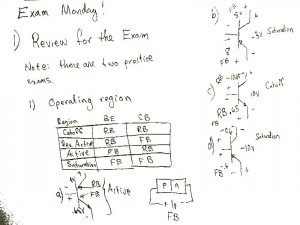 Exam Monday!
1) Review for the Exam
Note: there are two practice
exams.
1) Operating region
Region BE CB
Cutoff RB RB
Rev Active RB FB
Active FB RB
Saturation FB FB
a)
RB
FB
Active
P n
+ -
FB
b) FB
Saturation
FB
c) RB
10V
Cutoff
RB
d)
Saturation
-10V
FB